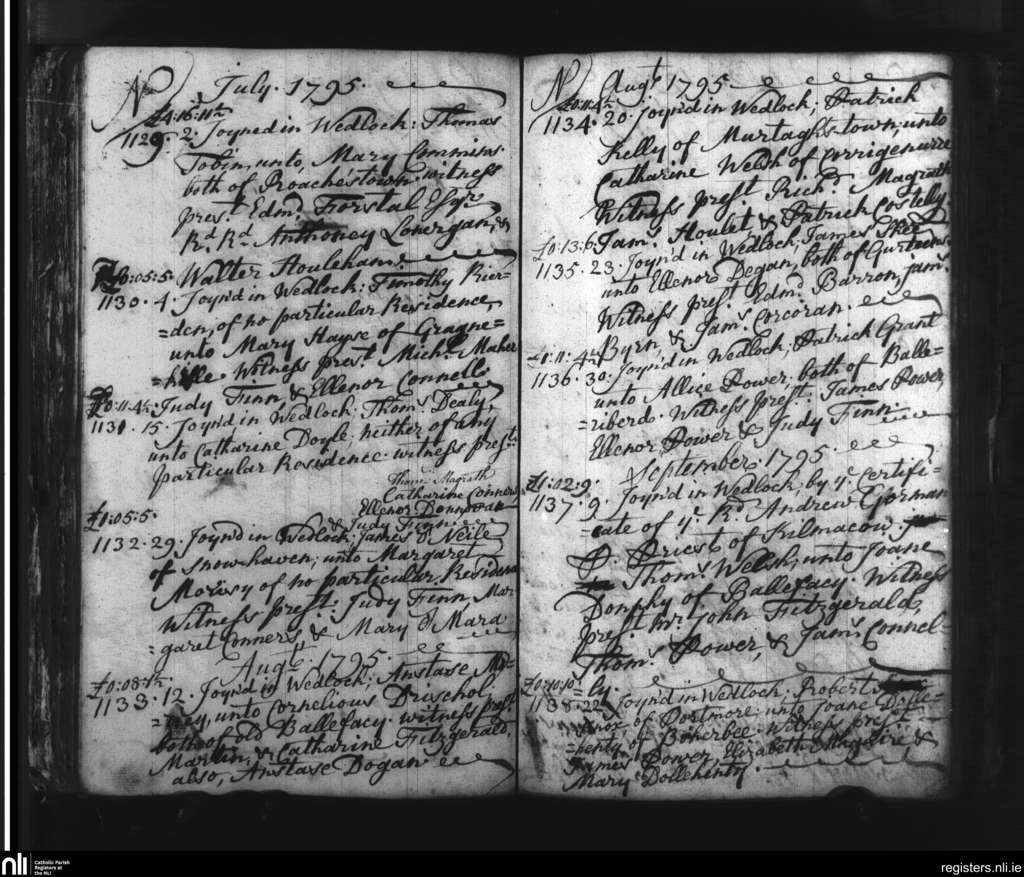 No July. 1795.
£4:16:11½
1129. 2. Joyned in Wedlock: Thomas
Tobin, unto, Mary Commins.
both of Roachestown. witness
prest. Edmd. Forstal Esqr.
Rd. Rd. Anthoney Lonergan, &
£0:05:5. Walter Houlehan.
1130. 4. Joyn'd in Wedlock: Timothy Rier=
=den, of no particular Residence,
unto Mary Hayse of Gragne=
=hille. Witness prest. Michl. Maher
£0:11:4½. Judy Finn & Ellenor Connell
1131. 15. Joyn'd in Wedlock: Thoms. Dealy,
unto Catharine Doyle: neither of any
particular Residence. witness prest.
Thoms. Magrath
Catharine Conners,
Ellenor Donnovan
£1:05:5. & Judy Finn.
1132. 29. Joyn'd in Wedlock: James O'Neile
of Snow-haven; unto Margaret
Morisy of no particular, Residence
Witness prest: Judy Finn, Mar
=garet Conners & Mary O'Mara
Augt. 1795.
£0:08:1½.
1133. 12. Joyn'd in Wedlock; Anstase
unto Cornelious Drischol,
both of old Ballefacy. witness prest.
Martin, & Catharine Fitzgerald,
also, Anstase Dogan
No Augt. 1795
£0:11:4½
1134. 20. Joyn'd in Wedlock; Patrick
Kelly of Murtaghs-town, unto
Catharine Welsh of Corrigenurre
Witness prest. Richd. Magrath
£0:13:6. Jams. Houlet & Patrick Costelly.
1135. 23. Joyn'd in Wedlock, James Shee
unto Ellenor Degan, both of Gurteens.
Witness prest. Edmd. Barron, jams.
Byrn, & Jams. Corcoran
£1:11:4½
1136. 30. Joyn'd in Wedlock, Patrick Grant
unto Allice Power; both of Balle=
=riberd. Witness prest. James Power,
Ellenor, Power & Judy Finn.
September. 1795.
£1:02:9.
1137. 9. Joyn'd in Wedlock, by ye. Certifi=
=cate of ye. Rd. Andrew Gorman
P. Priest of Kilmacow.
Thoms. Welsh, unto Joane
Donphy of Ballefacy. Witness
prest. Mr. John Fitzgerald,
Thoms. Power, & Jams. Connel=
£0:10:10 =ly.
1138. 22. Joyn'd in Wedlock; Robert
of Portmore: unto Joane Dolle=
=henty of Bonerbee. Witness prest.
James Power, Elizabeth Maguire &
Mary Dollehinty.
nli Catholic Parish
Registers at
the NLI
registers.nli.ie